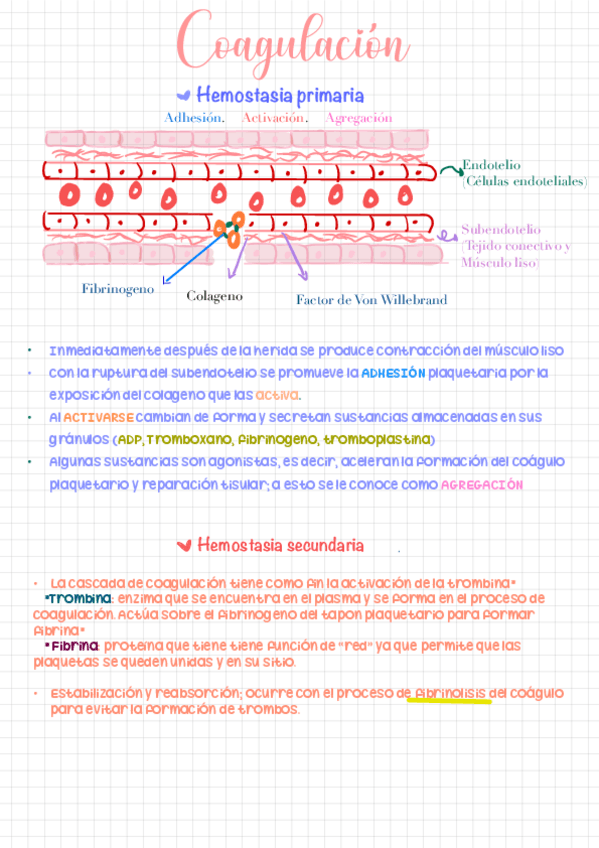 Coagulación
Hemostasia primaria
Adhesión. Activación. Agregación
Endotelio
(Células endoteliales)
Subendotelio
(Tejido conectivo y
Músculo liso)
Fibrinogeno
Colageno
Factor de Von Willebrand
• Inmediatamente después de la herida se produce contracción del músculo liso
• con la ruptura del subendotelio se promueve la ADHESIÓN plaquetaria por la
exposición del colageno que las activa.
• Al ACTIVARSE cambian de forma y secretan sustancias almacenadas en sus
gránulos (ADP, Tromboxano, fibrinogeno, tromboplastina)
• Algunas sustancias son agonistas, es decir, aceleran la formación del coágulo
plaquetario y reparación tisular; a esto se le conoce como AGREGACIÓN
Hemostasia secundaria .
• La cascada de coagulación tiene como fin la activación de la trombina*
*Trombina: enzima que se encuentra en el plasma y se forma en el proceso de
coagulación. Actúa sobre el fibrinogeno del tapon plaquetario para formar
fibrina*
*Fibrina: proteína que tiene tiene función de "red" ya que permite que las
plaquetas se queden unidas y en su sitio.
• Estabilización y reabsorción; ocurre con el proceso de fibrinolisis del coágulo
para evitar la formación de trombos.